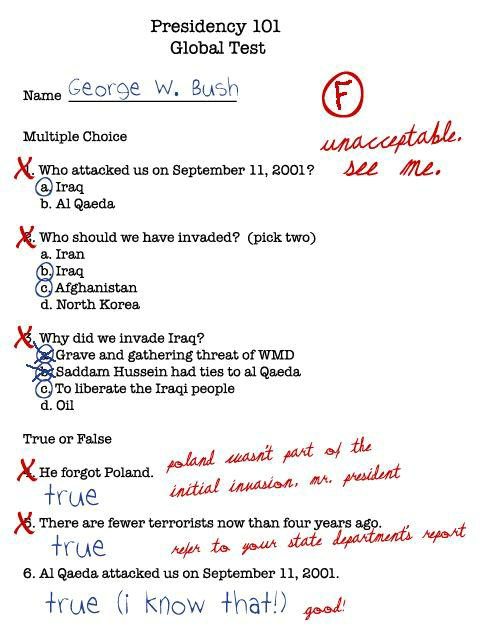 Presidency 101
Global Test
Name George W. Bush
F
Multiple Choice
unacceptable.
see me.
X 1. Who attacked us on September 11, 2001?
a. Iraq
b. Al Qaeda
X 2. Who should we have invaded? (pick two)
a. Iran
b. Iraq
c. Afghanistan
d. North Korea
X 3. Why did we invade Iraq?
a. Grave and gathering threat of WMD
b. Saddam Hussein had ties to al Qaeda
c. To liberate the Iraqi people
d. Oil
True or False
X 4. He forgot Poland.
poland wasn't part of the
initial invasion, mr. president
true
X 5. There are fewer terrorists now than four years ago.
true
refer to your state department's report
6. Al Qaeda attacked us on September 11, 2001.
true (i know that!) good!